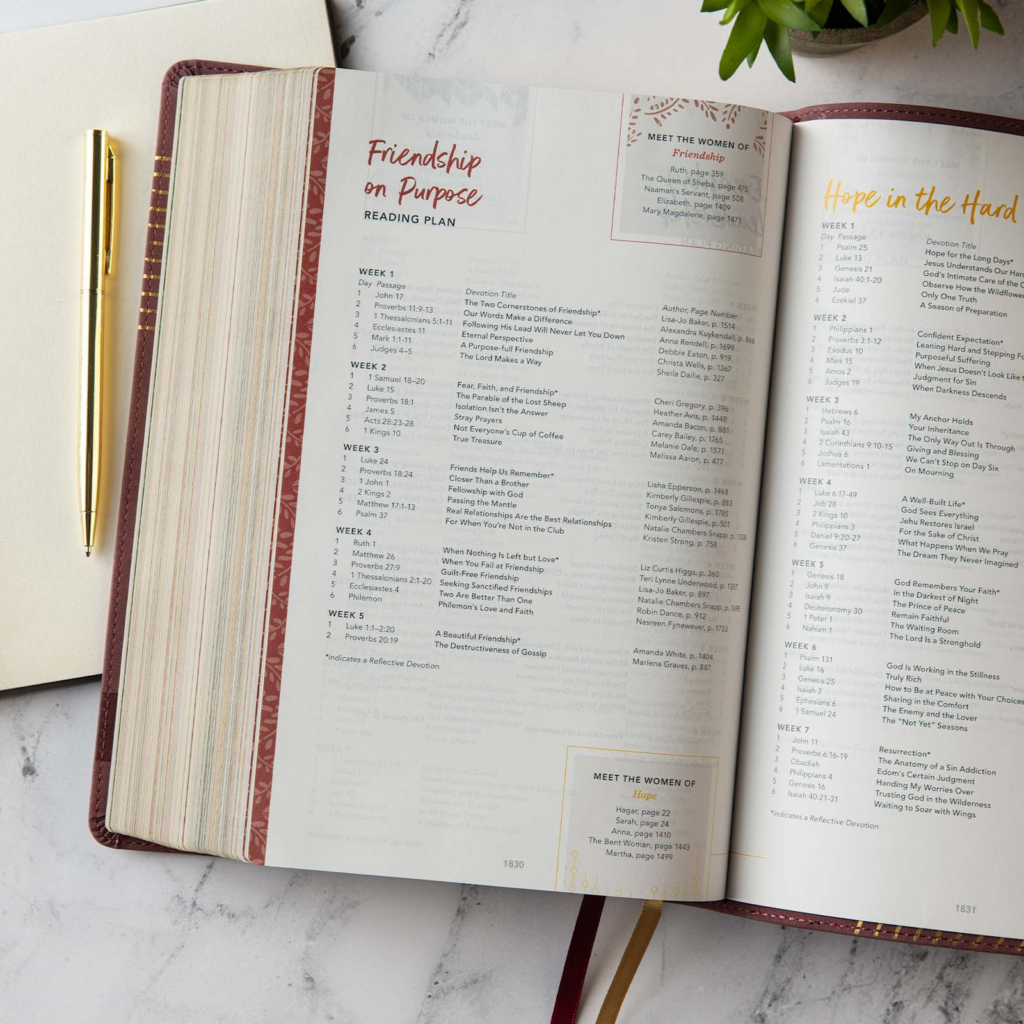 Friendship
on Purpose
READING PLAN
MEET THE WOMEN OF
Friendship
Ruth, page 359
The Queen of Sheba, page 475
Naaman's Servant, page 508
Elizabeth, page 1409
Mary Magdalene, page 1471
WEEK 1
Day Passage Devotion Title Author, Page Number
1 John 17 The Two Cornerstones of Friendship* Lisa-Jo Baker, p. 1514
2 Proverbs 11:9-13 Our Words Make a Difference Alexandra Kuykendall, p. 866
3 1 Thessalonians 5:1-11 Following His Lead Will Never Let You Down Anna Rendell, p. 1699
4 Ecclesiastes 11 Eternal Perspective Debbie Eaton, p. 919
5 Mark 1:1-11 A Purpose-full Friendship Christa Wells, p. 1367
6 Judges 4–5 The Lord Makes a Way Sheila Dailie, p. 327
WEEK 2
1 1 Samuel 18–20 Fear, Faith, and Friendship* Cheri Gregory, p. 396
2 Luke 15 The Parable of the Lost Sheep Heather Avis, p. 1448
3 Proverbs 18:1 Isolation Isn't the Answer Amanda Bacon, p. 881
4 James 5 Stray Prayers Carey Bailey, p. 1765
5 Acts 28:23-28 Not Everyone's Cup of Coffee Melanie Dale, p. 1571
6 1 Kings 10 True Treasure Melissa Aaron, p. 477
WEEK 3
1 Luke 24 Friends Help Us Remember* Lisha Epperson, p. 1468
2 Proverbs 18:24 Closer Than a Brother Kimberly Gillespie, p. 883
3 1 John 1 Fellowship with God Tonya Salomons, p. 1785
4 2 Kings 2 Passing the Mantle Kimberly Gillespie, p. 501
5 Matthew 17:1-13 Real Relationships Are the Best Relationships Natalie Chambers Snapp, p. 1338
6 Psalm 37 For When You're Not in the Club Kristen Strong, p. 758
WEEK 4
1 Ruth 1 When Nothing Is Left but Love* Liz Curtis Higgs, p. 360
2 Matthew 26 When You Fail at Friendship Teri Lynne Underwood, p. 1357
3 Proverbs 27:9 Guilt-Free Friendship Lisa-Jo Baker, p. 897
4 1 Thessalonians 2:1-20 Seeking Sanctified Friendships Natalie Chambers Snapp, p. 1695
5 Ecclesiastes 4 Two Are Better Than One Robin Dance, p. 912
6 Philemon Philemon's Love and Faith Nasreen Fynewever, p. 1733
WEEK 5
1 Luke 1:1–2:20 A Beautiful Friendship* Amanda White, p. 1404
2 Proverbs 20:19 The Destructiveness of Gossip Marlena Graves, p. 887
*indicates a Reflective Devotion
MEET THE WOMEN OF
Hope
Hagar, page 22
Sarah, page 24
Anna, page 1410
The Bent Woman, page 1443
Martha, page 1499
1830
Hope in the Hard
WEEK 1
Day Passage Devotion Title
1 Psalm 25 Hope for the Long Days*
2 Luke 13 Jesus Understands Our Har
3 Genesis 21 God's Intimate Care of the O
4 Isaiah 40:1-20 Observe How the Wildflower
5 Jude Only One Truth
6 Ezekiel 37 A Season of Preparation
WEEK 2
1 Philippians 1 Confident Expectation*
2 Proverbs 3:1-12 Leaning Hard and Stepping Fo
3 Exodus 10 Purposeful Suffering
4 Mark 15 When Jesus Doesn't Look Like t
5 Amos 2 Judgment for Sin
6 Judges 19 When Darkness Descends
WEEK 3
1 Hebrews 6 My Anchor Holds
2 Psalm 16 Your Inheritance
3 Isaiah 43 The Only Way Out Is Through
4 2 Corinthians 9:10-15 Giving and Blessing
5 Joshua 6 We Can't Stop on Day Six
6 Lamentations 1 On Mourning
WEEK 4
1 Luke 6:17-49 A Well-Built Life*
2 Job 28 God Sees Everything
3 2 Kings 10 Jehu Restores Israel
4 Philippians 3 For the Sake of Christ
5 Daniel 9:20-27 What Happens When We Pray
6 Genesis 37 The Dream They Never Imagined
WEEK 5
1 Genesis 18 God Remembers Your Faith*
2 John 9 In the Darkest of Night
3 Isaiah 9 The Prince of Peace
4 Deuteronomy 30 Remain Faithful
5 1 Peter 1 The Waiting Room
6 Nahum 1 The Lord Is a Stronghold
WEEK 6
1 Psalm 131 God Is Working in the Stillness
2 Luke 16 Truly Rich
3 Genesis 25 How to Be at Peace with Your Choices
4 Isaiah 7 Sharing in the Comfort
5 Ephesians 6 The Enemy and the Lover
6 1 Samuel 24 The "Not Yet" Seasons
WEEK 7
1 John 11 Resurrection*
2 Proverbs 6:16-19 The Anatomy of a Sin Addiction
3 Obadiah Edom's Certain Judgment
4 Philippians 4 Handing My Worries Over
5 Genesis 16 Trusting God in the Wilderness
6 Isaiah 40:21-31 Waiting to Soar with Wings
*indicates a Reflective Devotion
1831